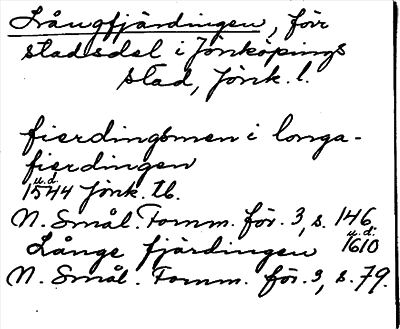 Långfjärdingen, förr
stadsdel i Jönköpings
stad, Jönk. l.
fierdingsmen i longa-
fierdingen
u.d.
1544 Jönk. tb.
N. Smål. Fornm. för. 3, s. 146
u.d.
Långe fjärdingen 1610
N. Smål. Fornm. för. 3, s. 79.